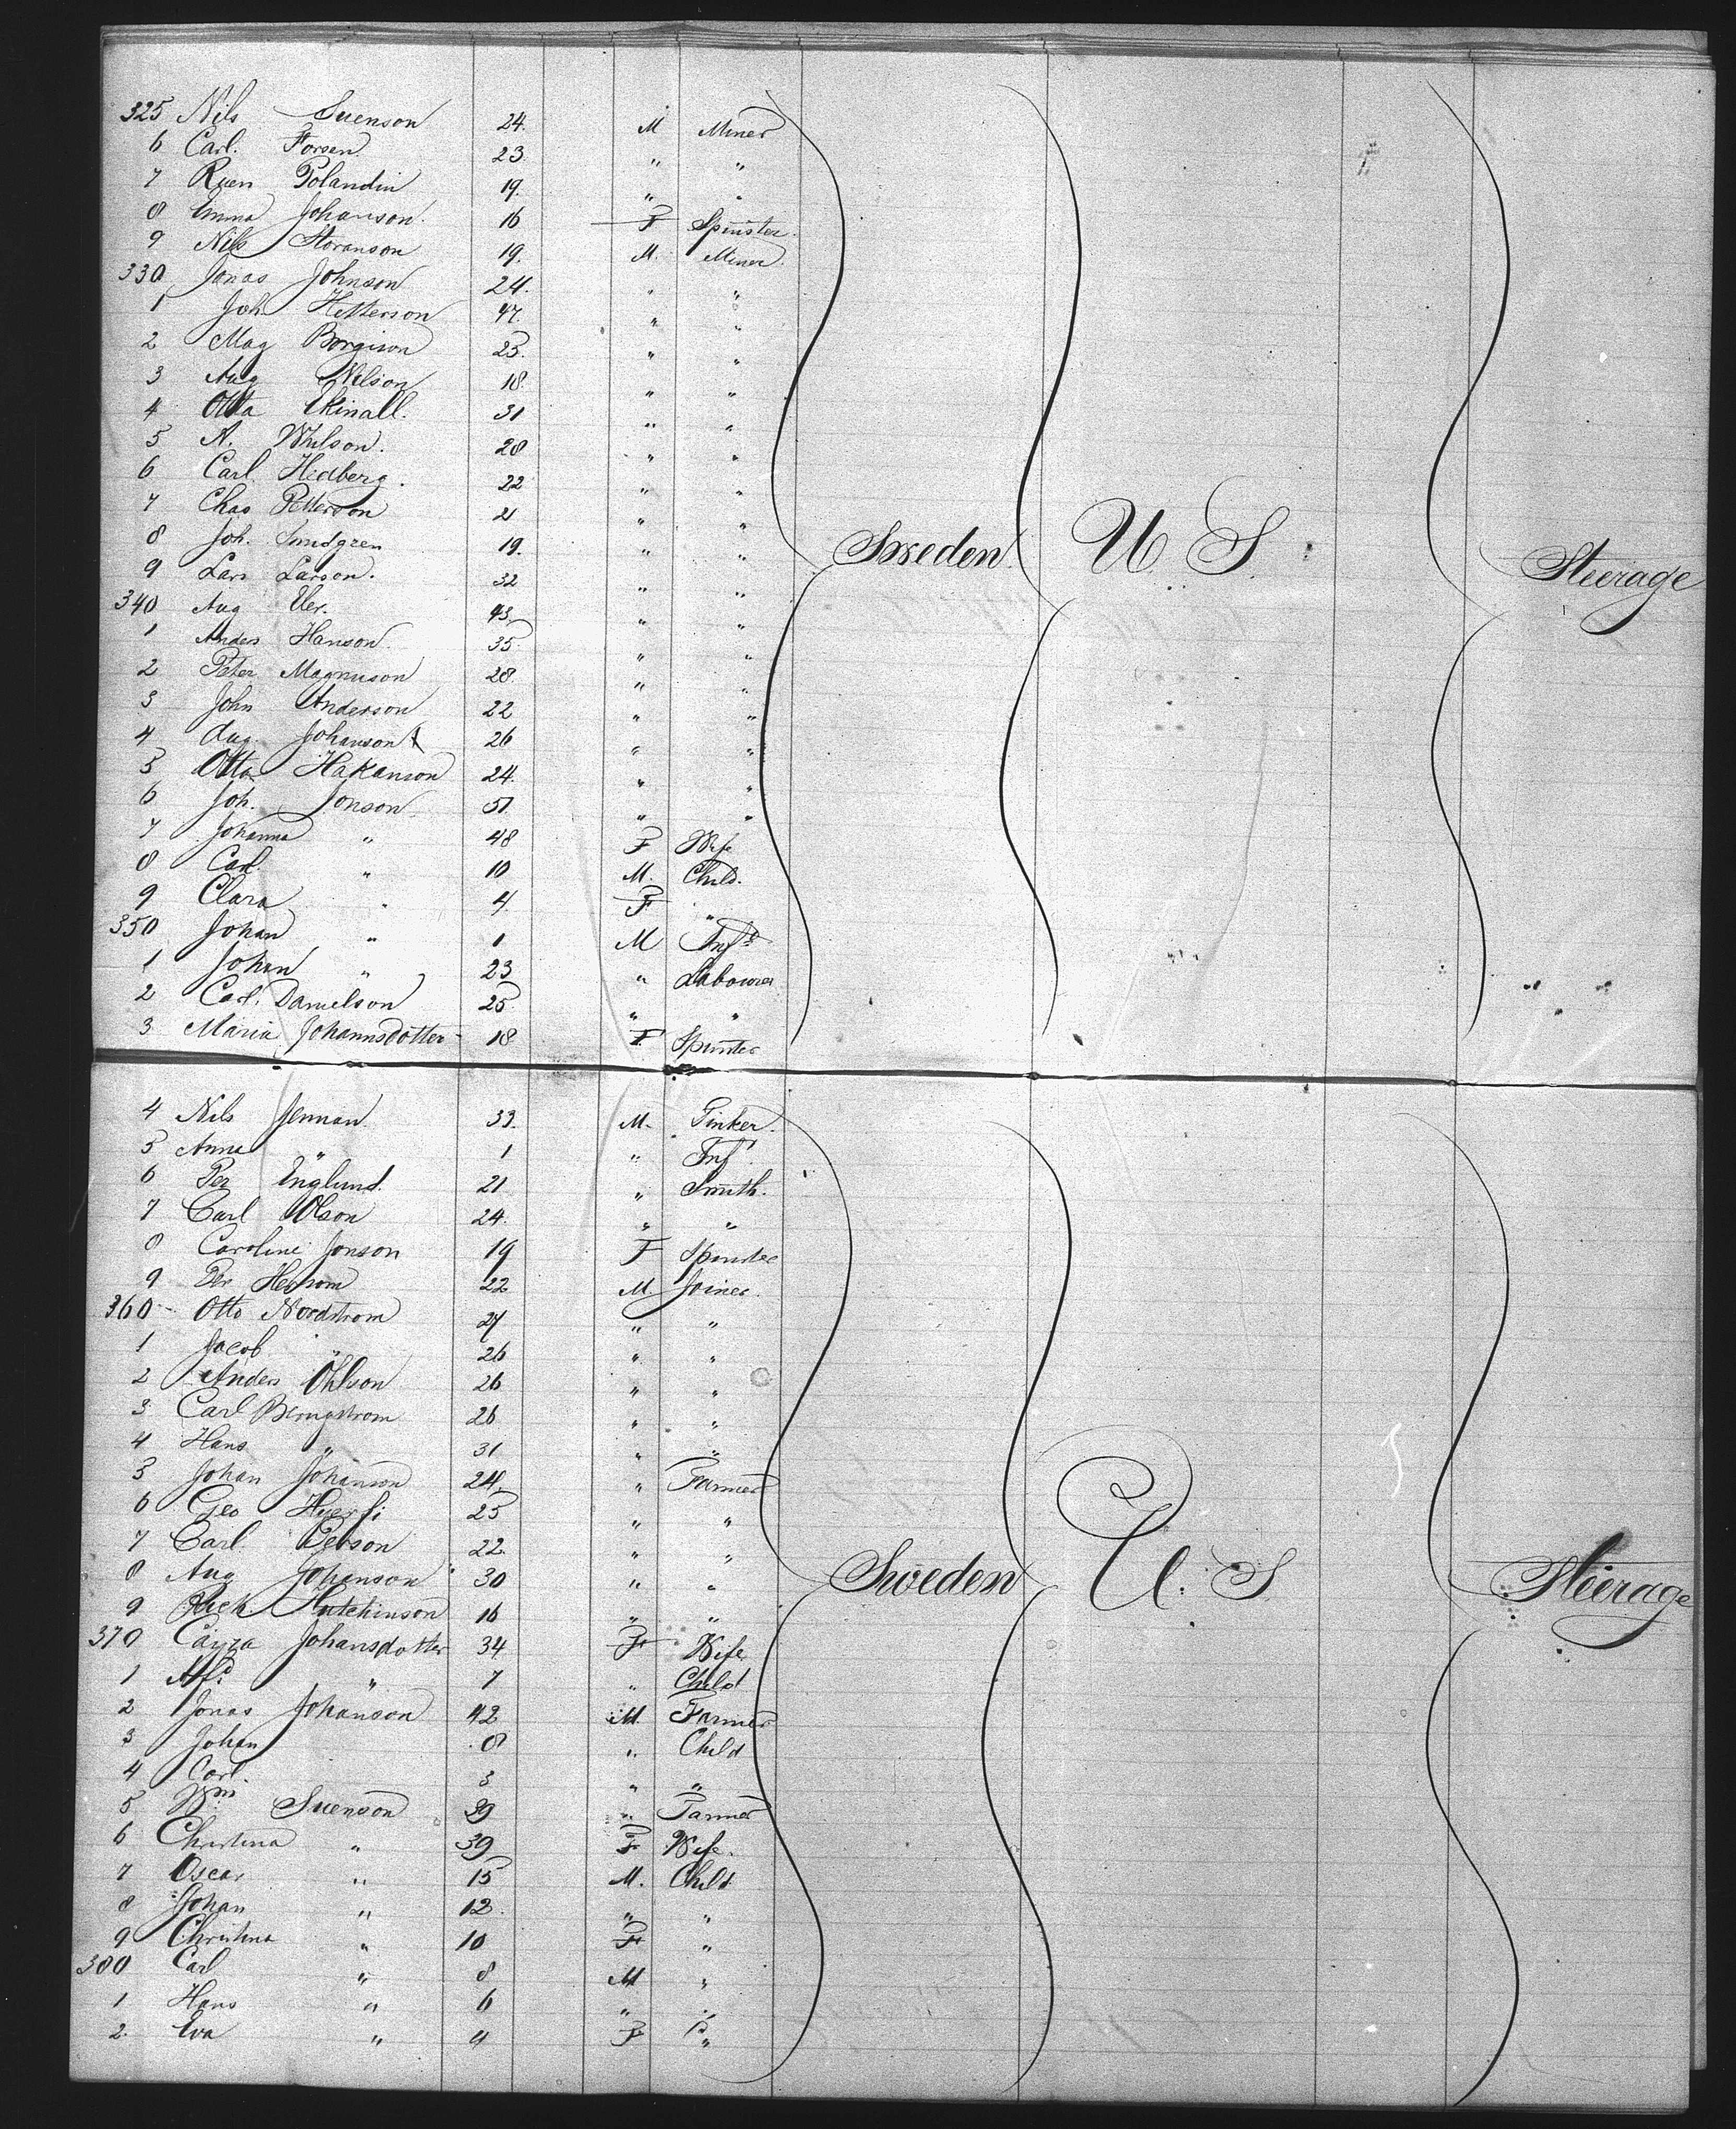 325 Nils Svenson 24. M Miner
6 Carl. Forsen 23 " "
7 Polandin 19. " "
8 Emma Johanson. 16 F Spinster.
9 Nils 19. M. Miner.
330 Jonas Johnson 24. " "
1 Joh 47. " "
2 Mag 25. " "
3 Aug Nilson 18. " "
4 Otta 31 " "
5 A. 28 " "
6 Carl Hedberg. 22 " "
7 Chas Petterson 21 " "
8 Joh. 19. " "
9 Lars Larson. 32 " "
340 Aug 43 " "
1 Anders Hanson. 35 " "
2 Peter Magnuson 28. " "
3 John Anderson 22 " "
4 Aug. Johanson 26 " "
5 Otto Hakanson 24. " "
6 Joh. Jonson 51. " "
7 Johanna " 48 F Wife
8 Carl. " 10 M. Child.
9 Clara " 4. F "
350 Johan " 1 M Inft
1 Johan " 23 " Labourer
2 Carl. Danielson 25 " "
3 Maria Johannsdotter 18 F Spinster
Sweden U S Steerage
4 Nils 33. M. Tinker.
5 Anna " 1 " Inft.
6 Per Englund. 21 " Smith.
7 Carl Olson 24. " "
8 Caroline Jonson 19 F Spinster
9 Per 22 M Joiner.
360 Otto Nordstrom 27 " "
1 Jacob " 26 " "
2 Anders Ohlson 26 " "
3 Carl 26 " "
4 Hans " 31 " "
5 Johan Johanson 24. " Farmer
6 Geo 25 " "
7 Carl 22. " "
8 Aug Johanson 30 " "
9 Rich. Hutchinson 16 " "
370 Johansdotter 34 F Wife
1 " 7 " Child
2 Jonas Johanson 42 M. Farmer
3 Johan 8 " Child
4 Carl. 3 " "
5 Wm Svenson 39 " Farmer
6 Christina " 39 F Wife.
7 Oscar " 15 M. Child
8 Johan " 12. " "
9 Christina " 10 F "
380 Carl " 8 M "
1 Hans " 6 " "
2. Eva " 4 F "
Sweden U. S Steerage